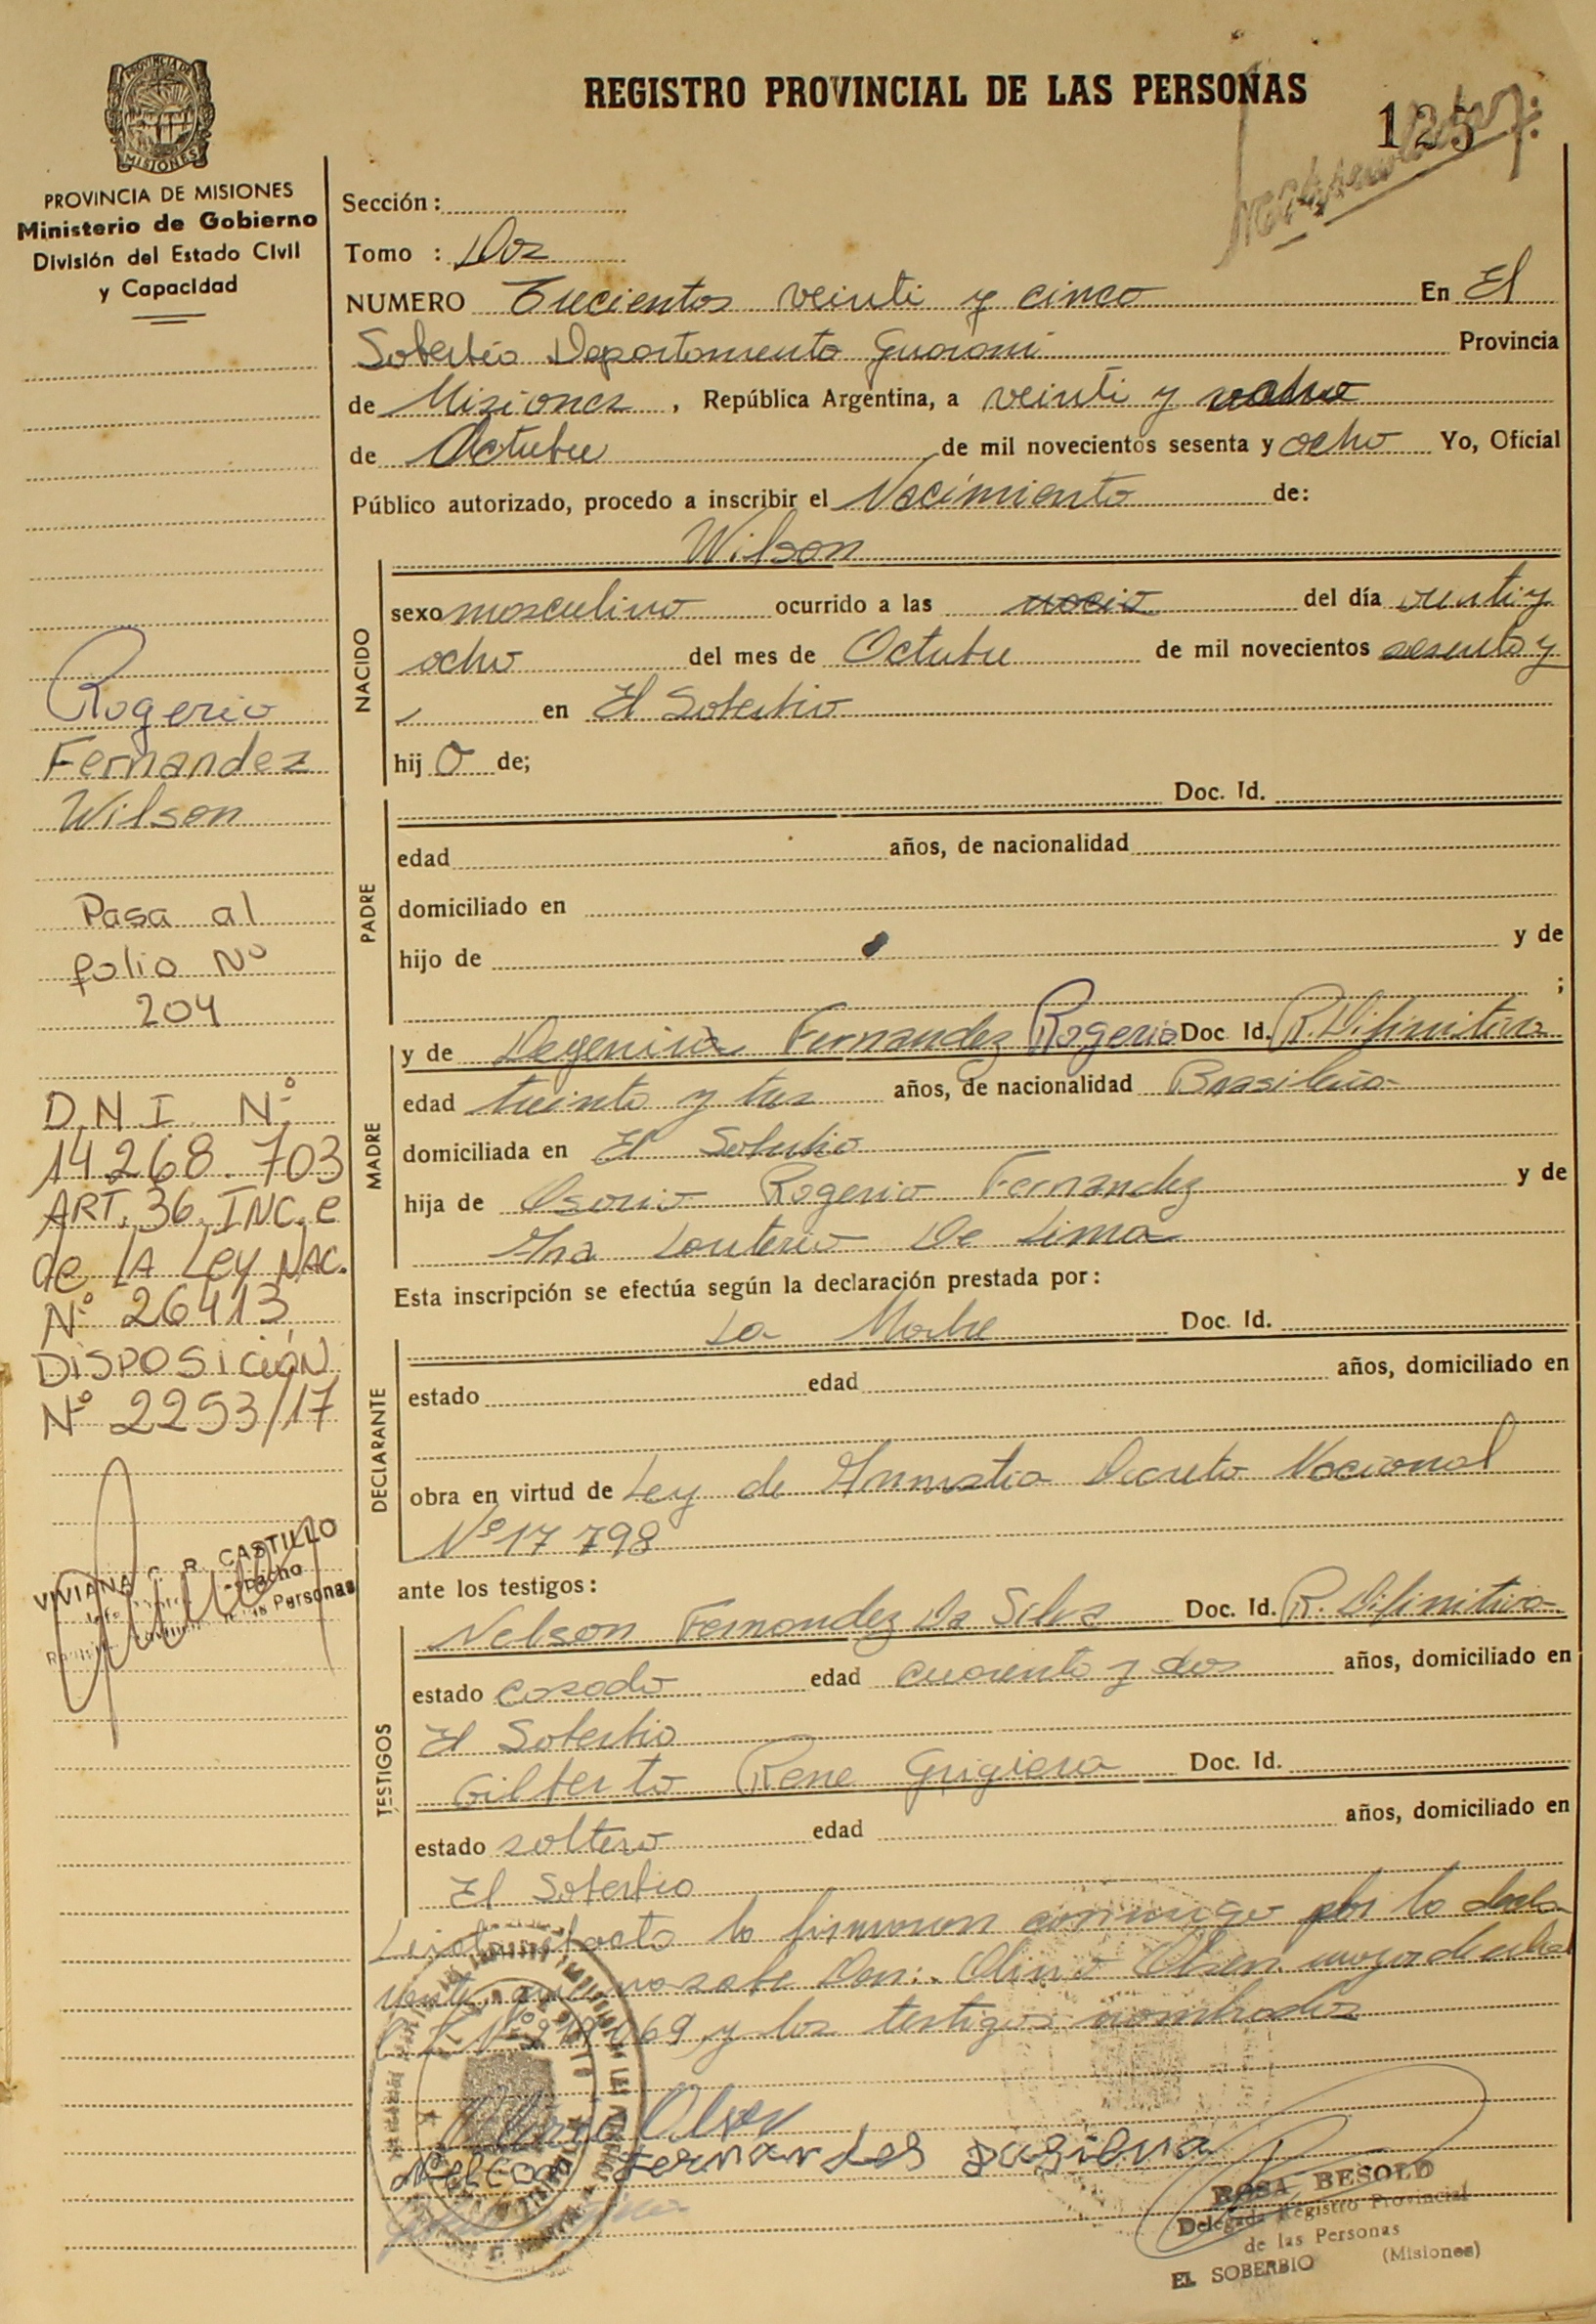 REGISTRO PROVINCIAL DE LAS PERSONAS
125
PROVINCIA DE MISIONES
PROVINCIA DE MISIONES
Ministerio de Gobierno
División del Estado Civil
y Capacidad
Rogerio
Fernandez
Wilson
Pasa al
folio Nº
204
D.N.I. Nº
14.268.703
ART. 36. INC. e
de LA Ley NAC.
Nº 26413
DISPOSICIÓN
Nº 2253/17
VIVIANA R. CASTILLO
Personas
Sección:
Tomo : Dos
NUMERO Trecientos veinti y cinco En El
Soberbio Departamento Guarani Provincia
de Misiones, República Argentina, a veinti y ocho
de Octubre de mil novecientos sesenta y ocho Yo, Oficial
Público autorizado, procedo a inscribir el Nacimiento de:
Wilson
NACIDO
sexo masculino ocurrido a las del día veinti y
ocho del mes de Octubre de mil novecientos sesenta y
en El Soberbio
hijo de;
PADRE
Doc. Id.
edad años, de nacionalidad
domiciliado en
hijo de y de
;
MADRE
y de Fernandez Rogerio Doc. Id. R. Difinitiva
edad treinta y tres años, de nacionalidad Brasileña
domiciliada en El Soberbio
hija de Osorio Rogerio Fernandez y de
Ana De Lima
Esta inscripción se efectúa según la declaración prestada por:
DECLARANTE
La Madre Doc. Id.
estado edad años, domiciliado en
obra en virtud de Ley de Amnistia Decreto Nacional
Nº 17 798
ante los testigos:
TESTIGOS
Nelson Fernandez Da Silva Doc. Id. R. Difinitiva
estado casado edad cuarenta y dos años, domiciliado en
El Soberbio
Gilberto Rene Grigiera Doc. Id.
estado soltero edad años, domiciliado en
El Soberbio
Leida acta la firmaron conmigo por la
no sabe Don: Olsen mayor de edad
y los testigos nombrados
Olsen
Nelson Fernandes Dasilva
ROSA BESOLD
Delegada Registro Provincial
de las Personas
EL SOBERBIO (Misiones)